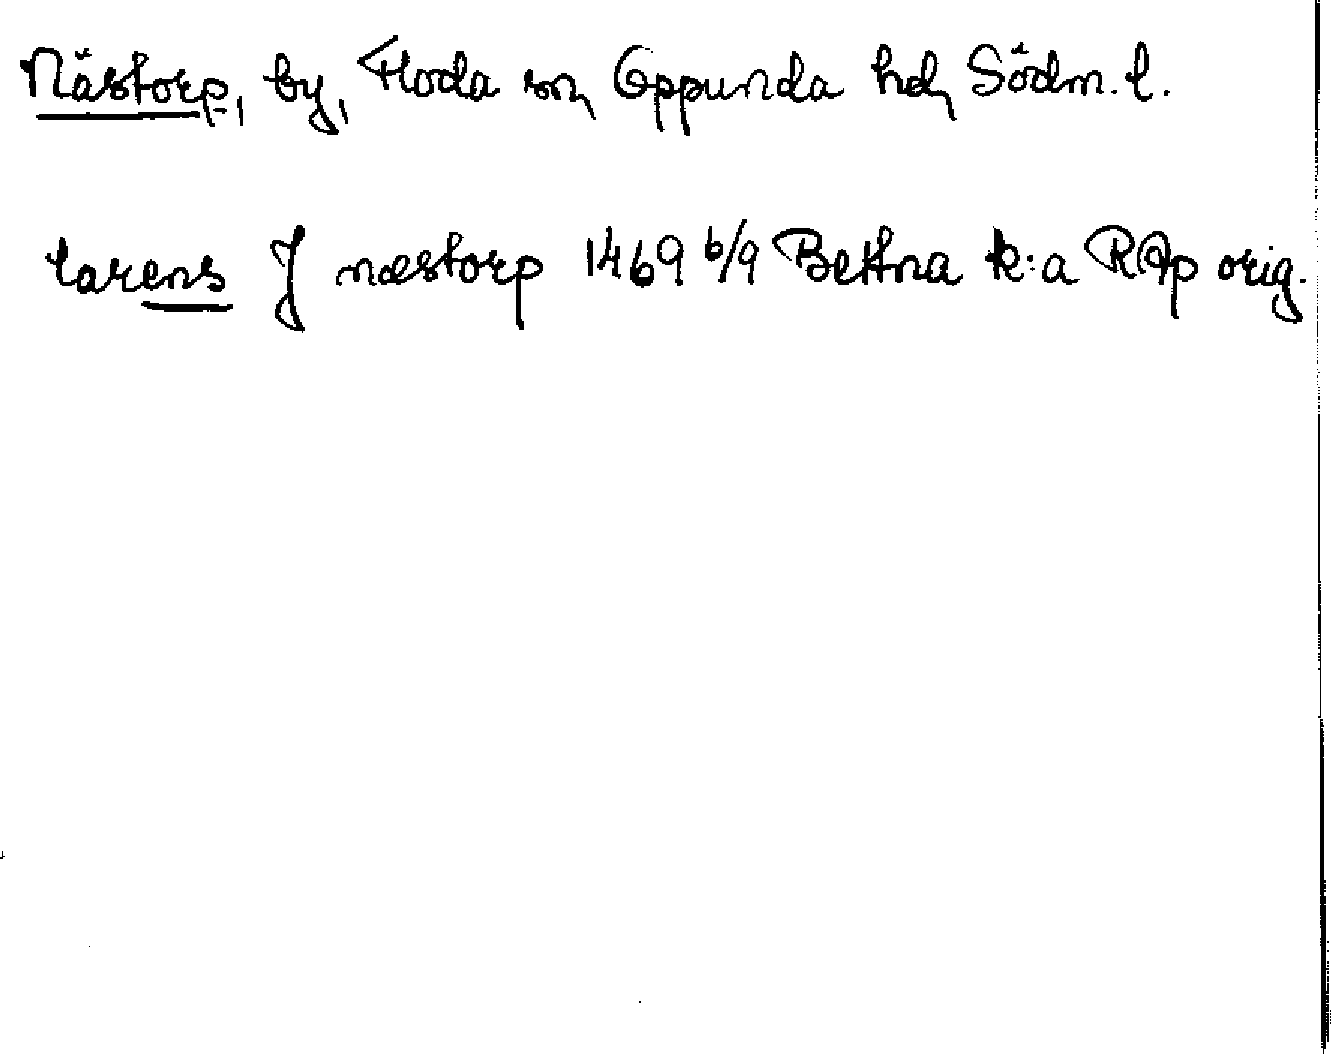 Nästorp, by, Floda sn, Oppunda hd, Södm. l.
larens J næstorp 1469 6/9 Bettna k:a RAp orig.